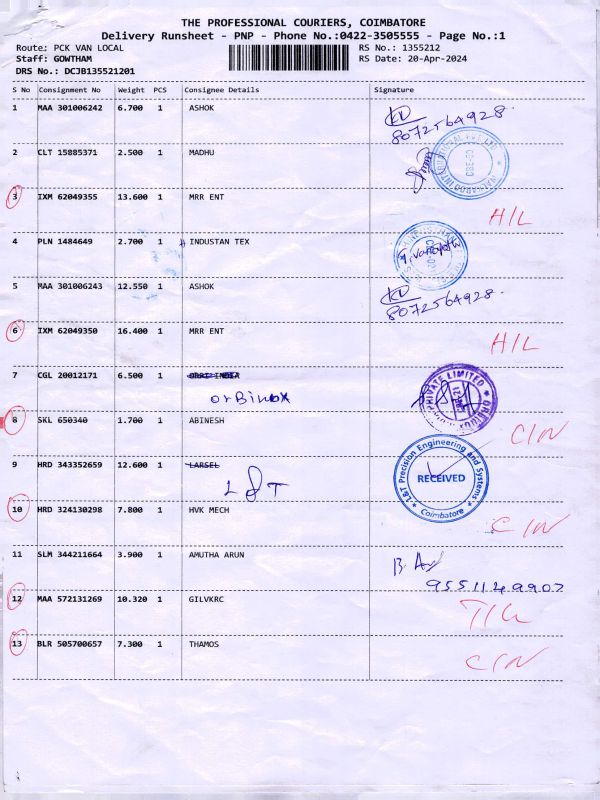 THE PROFESSIONAL COURIERS, COIMBATORE
Delivery Runsheet - PNP - Phone No.:0422-3505555 - Page No.:1
Route: PCK VAN LOCAL RS No.: 1355212
Staff: GOWTHAM RS Date: 20-Apr-2024
DRS No.: DCJB135521201
S No Consignment No Weight PCS Consignee Details Signature
1 MAA 301006242 6.700 1 ASHOK
8072564928
2 CLT 15885371 2.500 1 MADHU
3 IXM 62049355 13.600 1 MRR ENT
H/L
4 PLN 1484649 2.700 1 INDUSTAN TEX
5 MAA 301006243 12.550 1 ASHOK
8072564928
6 IXM 62049350 16.400 1 MRR ENT
H/L
7 CGL 20012171 6.500 1
orBinox
PRIVATE LIMITED ORBINOX
8 SKL 650340 1.700 1 ABINESH
C/N
9 HRD 343352659 12.600 1 LARSEL
L&T
L&T Precision Engineering and Systems
RECEIVED
Coimbatore
10 HRD 324130298 7.800 1 HVK MECH
C/N
11 SLM 344211664 3.900 1 AMUTHA ARUN
9551149907
12 MAA 572131269 10.320 1 GILVKRC
13 BLR 505700657 7.300 1 THAMOS
C/N